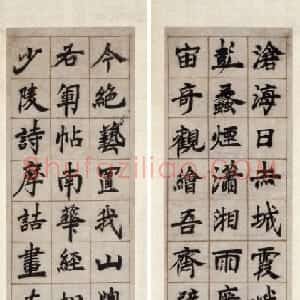 滄海日赤城霞峨
彭蠡煙瀟湘雨廣
宙奇觀繪吾齋壁
今絕藝置我山牕
右軍帖南華經相
少陵詩摩詰畫左
shufaziliao.COM